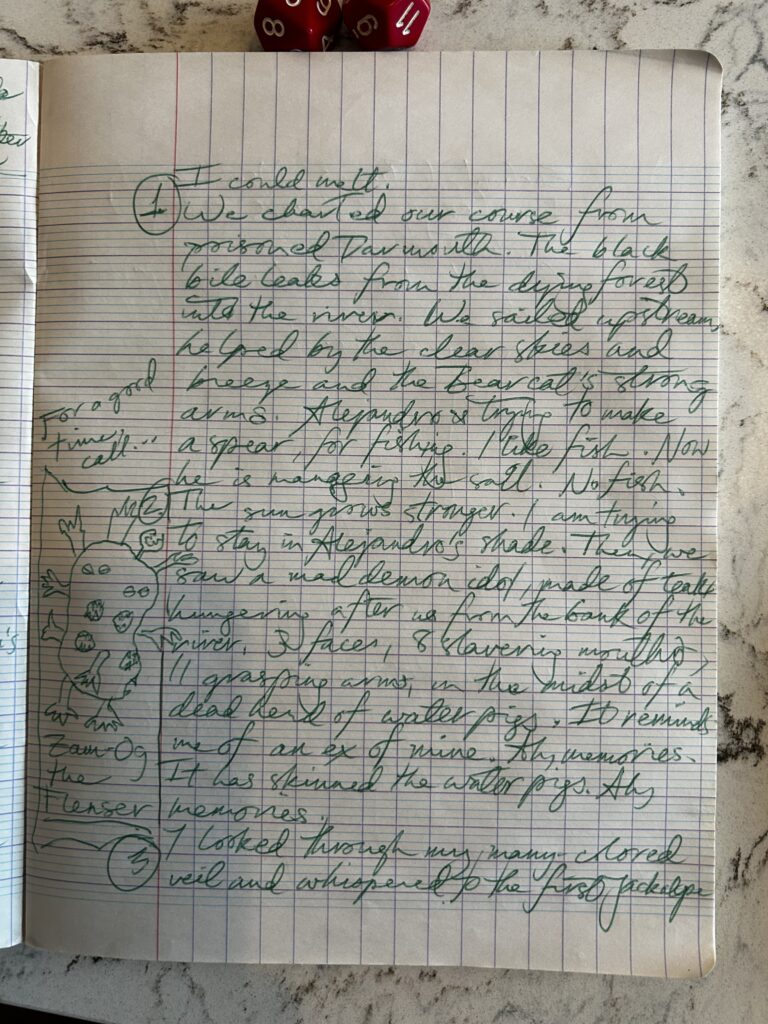 8
9
11
I could melt.
1
We charted our course from
poisoned Darmouth. The black
bile leaks from the dying forest
into the river. We sailed upstream,
helped by the clear skies and
breeze and the Bearcat's strong
arms. Alejandro is trying to make
a spear, for fishing. I like fish. Now
he is the sail. No fish.
2
The sun grows stronger. I am trying
to stay in Alejandro's shade. Then, we
saw a mad demon idol, made of teak,
hungering after us from the bank of the
river. 3 faces, 8 slavering mouths,
11 grasping arms, in the midst of a
dead herd of water pigs. It reminds
me of an ex of mine. Ah, memories.
It has skinned the water pigs. Ah,
memories.
3
I looked through my many-colored
veil and whispered to the first jackalope
For a good
time,
call...
Zam-Og
the
Flenser